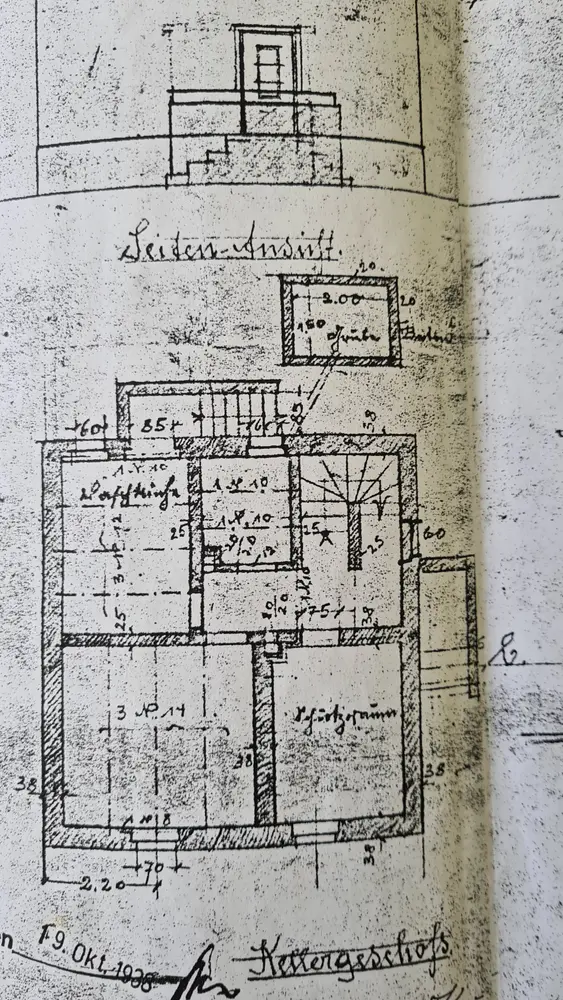 Seiten-Ansicht.
20
2.00
20
1.50
Grube
Beton
60
85
85
38
1 N 10
Waschküche
1 N 10
1 N 10
25
15
25
60
3 N 12
12
20
20
25
75
38
3 N 14
Schutzraum
38
38
38
N 8
38
70
2.20
19. Okt. 1938
Kellergeschoß